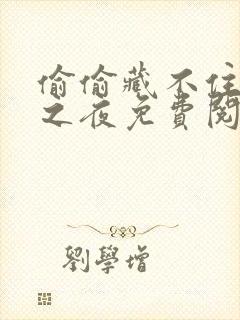 偷偷藏不住
之夜免費閱
劉學增